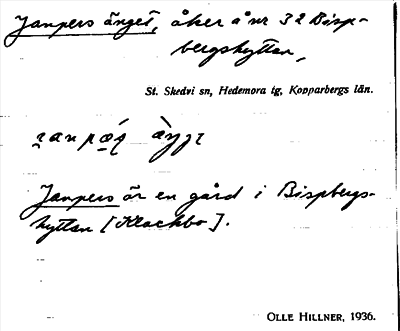 Janpers änget, åker å nr 32 Bisp-
bergshyttan,
St. Skedvi sn, Hedemora tg, Kopparbergs län.
Janpers är en gård i Bispbergs-
hyttan [Klackbo].
OLLE HILLNER, 1936.